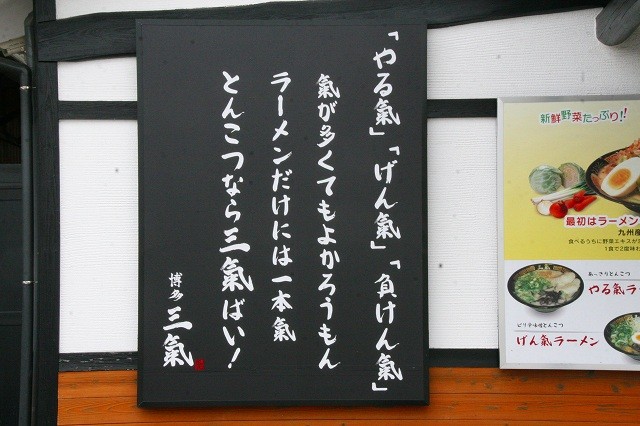 「やる氣」「げん氣」「負けん氣」
氣が多くてもよかろうもん
ラーメンだけには一本氣
とんこつなら三氣ばい!
博多 三氣
新鮮野菜たっぷり!!
最初はラーメン
九州産
食べるうちに野菜エキスが
1食で2度味わ
あっさりとんこつ
やる氣ラー
ピリ辛味噌とんこつ
げん氣ラーメン